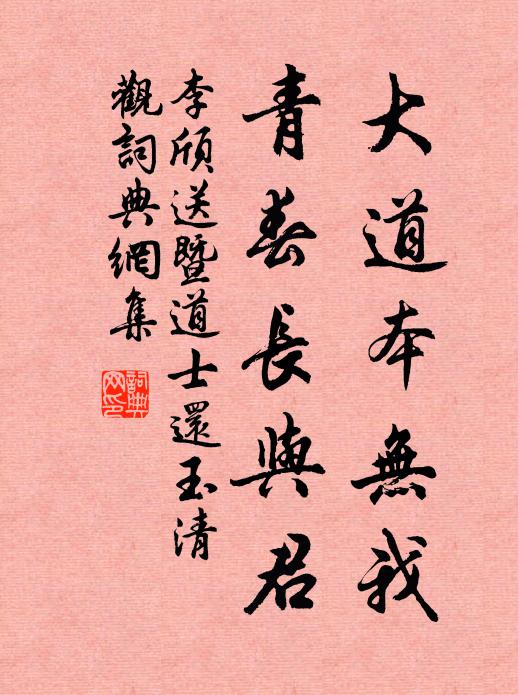 大道本無我
青春長與君
李頎送暨道士還玉清
觀詞典網集
詞典網印